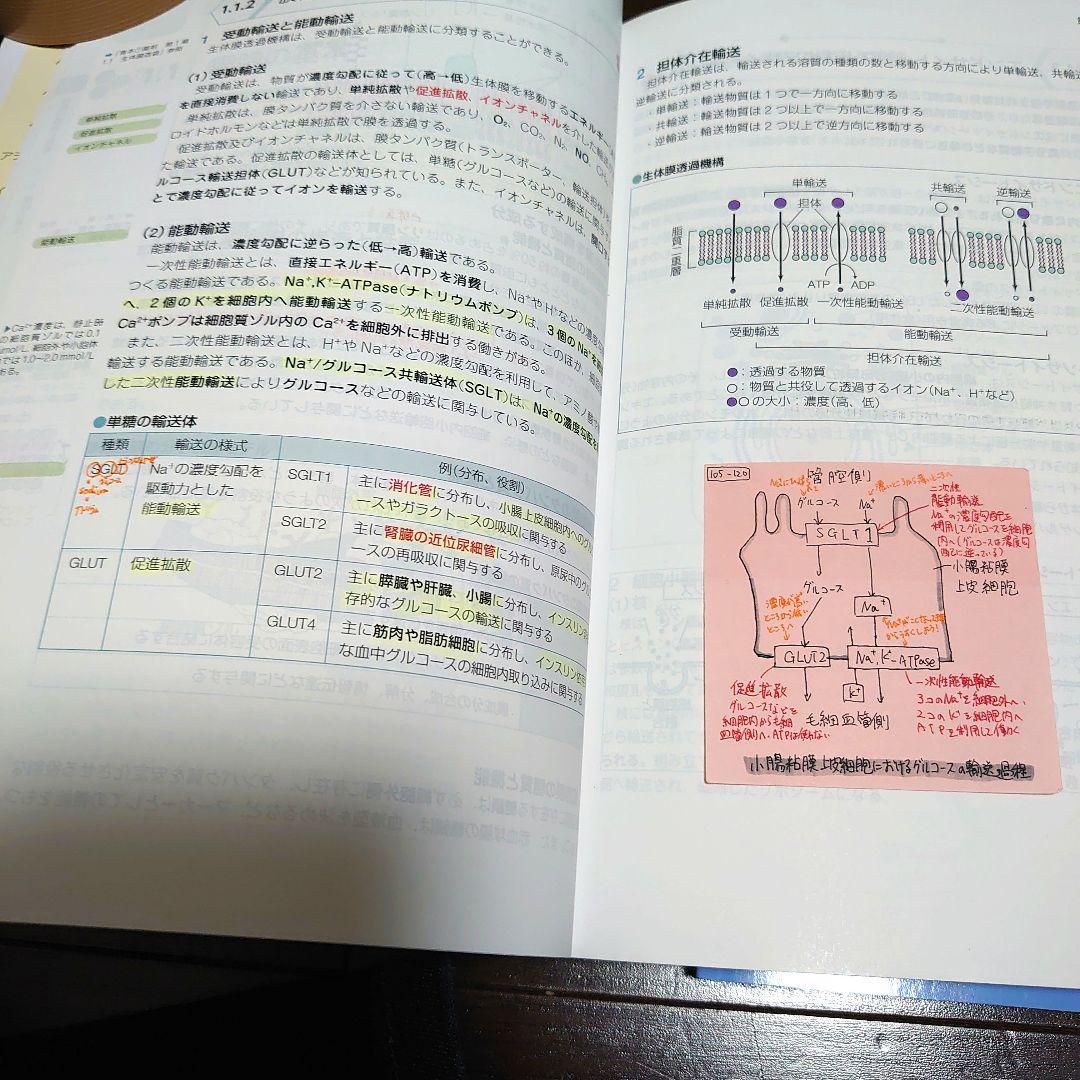 1.1.2
1 受動輸送と能動輸送
生体膜透過機構は、受動輸送と能動輸送に分類することができる。
(1) 受動輸送
受動輸送は、物質が濃度勾配に従って(高→低)生体膜を移動するエネルギー
を直接消費しない輸送であり、単純拡散や促進拡散、イオンチャネルを介した輸送
単純拡散は、膜タンパク質を介さない輸送であり、O₂、CO₂、N₂、NO
ロイドホルモンなどは単純拡散で膜を透過する。
促進拡散及びイオンチャネルは、膜タンパク質(トランスポーター、輸送担体)
た輸送である。促進拡散の輸送体としては、単糖(グルコースなど)の輸送に関与
ルコース輸送担体(GLUT)などが知られている。また、イオンチャネルは、開口
とで濃度勾配に従ってイオンを輸送する。
単純拡散
促進拡散
イオンチャネル
(2) 能動輸送
能動輸送は、濃度勾配に逆らった(低→高)輸送である。
一次性能動輸送とは、直接エネルギー(ATP)を消費し、Na⁺やH⁺などの濃度
つくる能動輸送である。Na⁺,K⁺-ATPase(ナトリウムポンプ)は、3個のNa⁺を
へ、2個のK⁺を細胞内へ能動輸送する一次性能動輸送である。このほか、
Ca²⁺ポンプは細胞質ゾル内のCa²⁺を細胞外に排出する働きがある。
また、二次性能動輸送とは、H⁺やNa⁺などの濃度勾配を利用して、アミノ酸
輸送する能動輸送である。Na⁺/グルコース共輸送体(SGLT)は、Na⁺の濃度勾配を
した二次性能動輸送によりグルコースなどの輸送に関与している。
能動輸送
▶Ca²⁺濃度は、静止時
の細胞質ゾルでは0.1
mol/L、細胞外や小胞体
では1.0~2.0mmol/L
ある。
●単糖の輸送体
種類 輸送の様式 例(分布、役割)
SGLT Na⁺の濃度勾配を
駆動力とした
能動輸送
SGLT1 主に消化管に分布し、小腸上皮細胞内へのグル
コースやガラクトースの吸収に関与する
SGLT2 主に腎臓の近位尿細管に分布し、原尿中のグル
コースの再吸収に関与する
GLUT 促進拡散
GLUT2 主に膵臓や肝臓、小腸に分布し、インスリン非
存的なグルコースの輸送に関与する
GLUT4 主に筋肉や脂肪細胞に分布し、インスリン依存
な血中グルコースの細胞内取り込みに関与する
2 担体介在輸送
担体介在輸送は、輸送される溶質の種類の数と移動する方向により単輸送、共輸送
逆輸送に分類される。
・単輸送：輸送物質は1つで一方向に移動する
・共輸送：輸送物質は2つ以上で一方向に移動する
・逆輸送：輸送物質は2つ以上で逆方向に移動する
●生体膜透過機構
単輸送
担体
共輸送
逆輸送
脂質二重層
ATP ADP
単純拡散 促進拡散 一次性能動輸送 二次性能動輸送
受動輸送 能動輸送
担体介在輸送
●：透過する物質
○：物質と共役して透過するイオン(Na⁺、H⁺など)
●○の大小：濃度(高、低)
105-120
管腔側
グルコース Na⁺
SGLT1
二次性
能動輸送
Na⁺の濃度勾配を
利用してグルコースを細胞
内へ(グルコースは濃度勾
配に逆っている)
小腸粘膜
上皮細胞
グルコース
Na⁺
濃度が高い
ところから低い
ところへ
GLUT2
Na⁺,K⁺-ATPase
K⁺
促進拡散
グルコースなどを
細胞内から毛細
血管側へ、ATPは使わない
毛細血管側
一次性能動輸送
3コのNa⁺を細胞外へ、
2コのK⁺を細胞内へ
ATPを利用して働く
小腸粘膜上皮細胞におけるグルコースの輸送過程